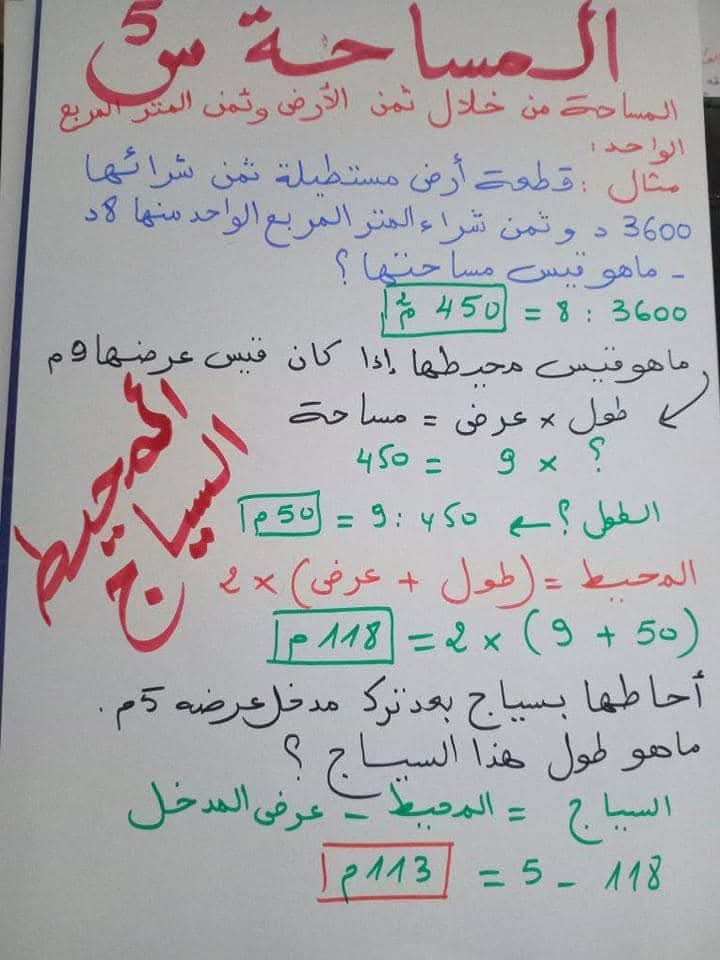 المساحة س5
المساحة من خلال ثمن الأرض وثمن المتر المربع
الواحد:
مثال: قطعة أرض مستطيلة ثمن شرائها
3600 د وثمن شراء المتر المربع الواحد منها 8د
- ماهو قيس مساحتها؟
3600 : 8 = 450 م²
ماهو قيس محيطها إذا كان قيس عرضها 9م
طول × عرض = مساحة
؟ × 9 = 450
الطول؟ ← 450 : 9 = 50م
المحيط = (طول + عرض) × 2
(50 + 9) × 2 = 118 م
المحيط
السياج
أحاطها بسياج بعد ترك مدخل عرضه 5م.
ماهو طول هذا السياج؟
السياج = المحيط - عرض المدخل
118 - 5 = 113م